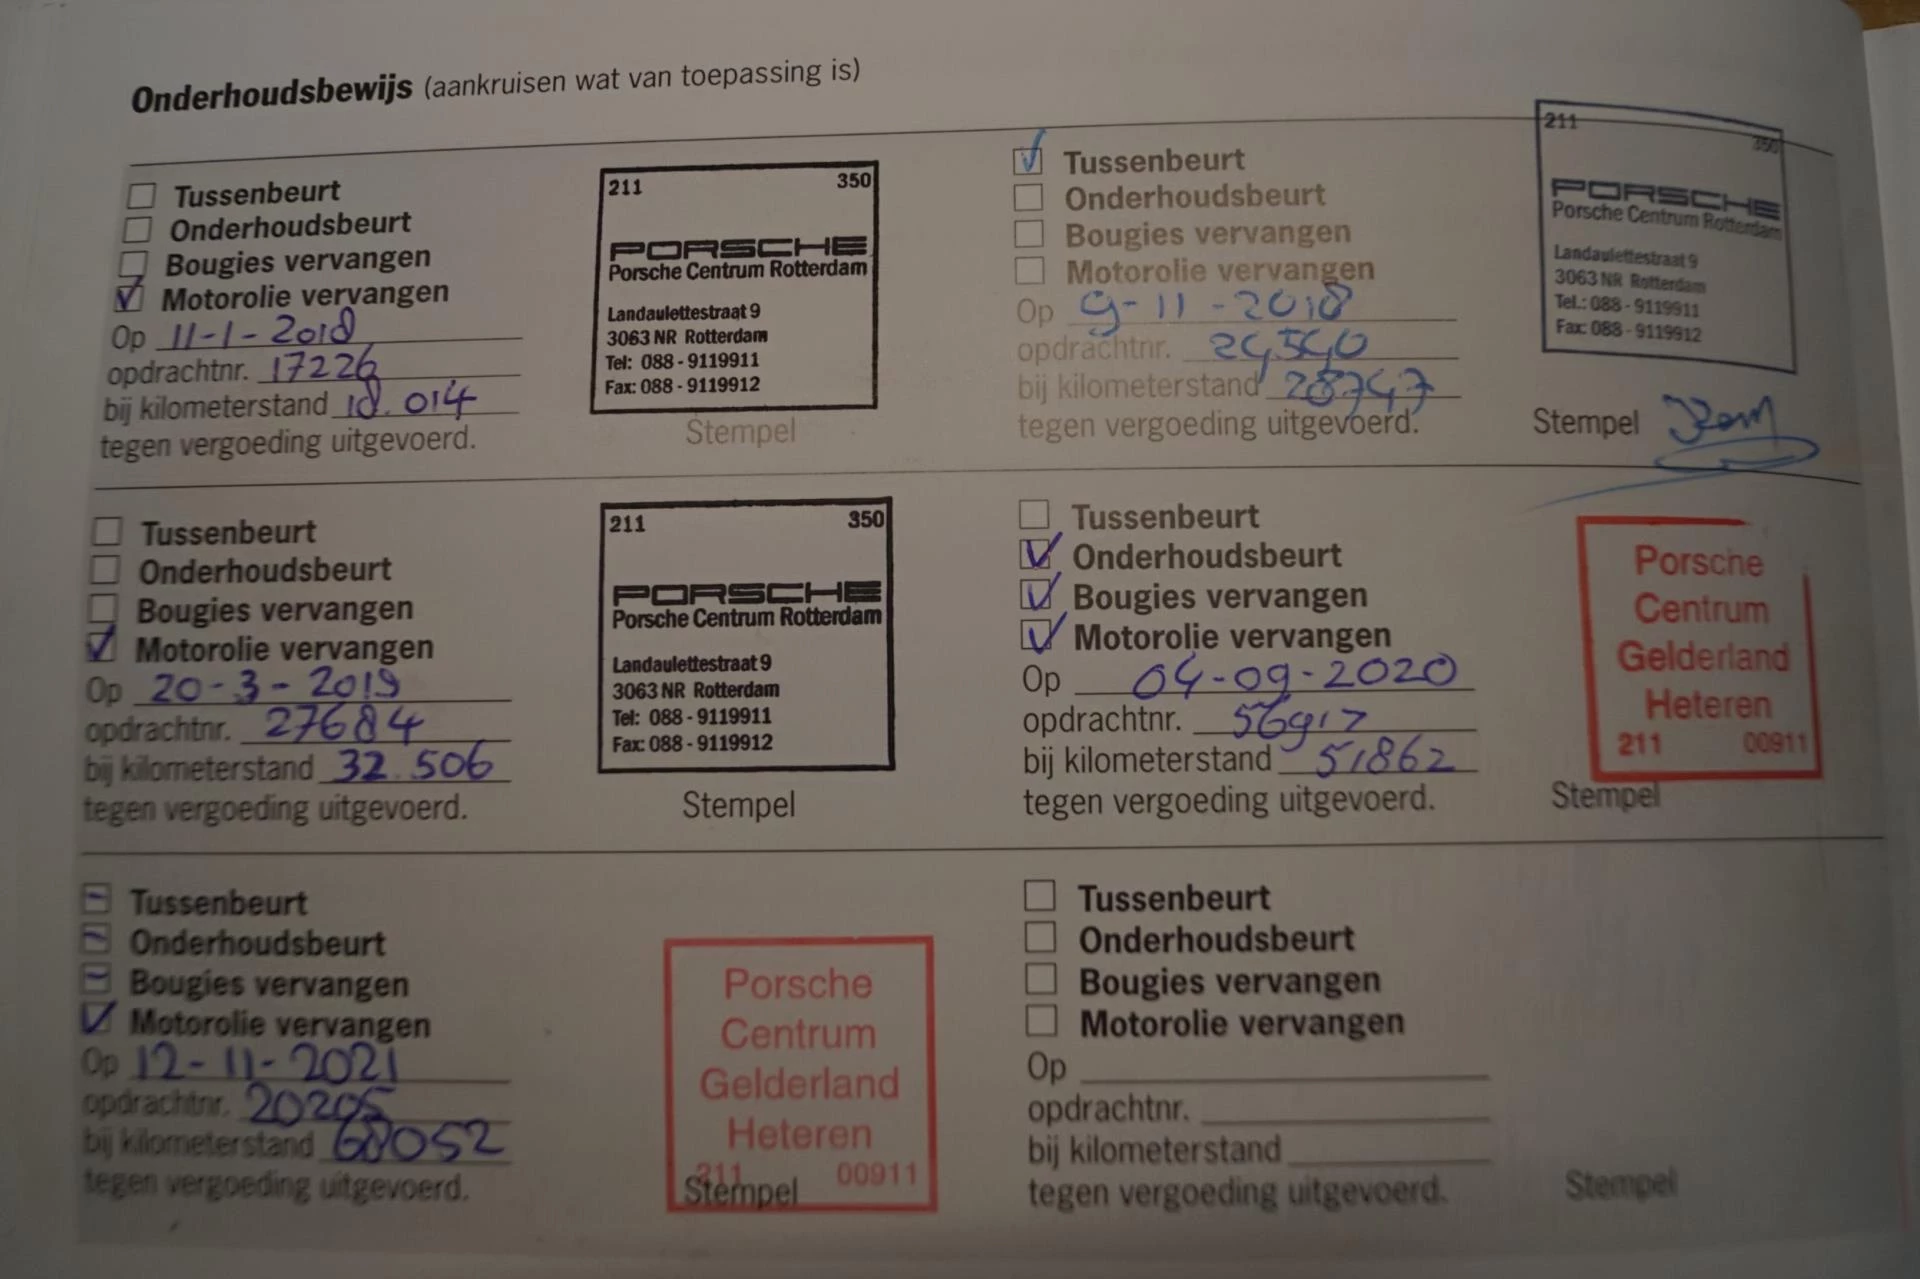 Onderhoudsbewijs (aankruisen wat van toepassing is)
Tussenbeurt
Onderhoudsbeurt
Bougies vervangen
Motorolie vervangen
Op 11-1-2018
opdrachtnr. 17226
bij kilometerstand 18.014
tegen vergoeding uitgevoerd.
211 350
PORSCHE
Porsche Centrum Rotterdam
Landaulettestraat 9
3063 NR Rotterdam
Tel: 088 - 9119911
Fax: 088 - 9119912
Stempel
Tussenbeurt
Onderhoudsbeurt
Bougies vervangen
Motorolie vervangen
Op 9-11-2018
opdrachtnr.
bij kilometerstand 28747
tegen vergoeding uitgevoerd.
211 350
PORSCHE
Porsche Centrum Rotterdam
Landaulettestraat 9
3063 NR Rotterdam
Tel.: 088 - 9119911
Fax: 088 - 9119912
Stempel
Tussenbeurt
Onderhoudsbeurt
Bougies vervangen
Motorolie vervangen
Op 20-3-2019
opdrachtnr. 27684
bij kilometerstand 32.506
tegen vergoeding uitgevoerd.
211 350
PORSCHE
Porsche Centrum Rotterdam
Landaulettestraat 9
3063 NR Rotterdam
Tel: 088 - 9119911
Fax: 088 - 9119912
Stempel
Tussenbeurt
Onderhoudsbeurt
Bougies vervangen
Motorolie vervangen
Op 04-09-2020
opdrachtnr. 56917
bij kilometerstand 51862
tegen vergoeding uitgevoerd.
Porsche
Centrum
Gelderland
Heteren
211 00911
Stempel
Tussenbeurt
Onderhoudsbeurt
Bougies vervangen
Motorolie vervangen
Op 12-11-2021
opdrachtnr. 20205
bij kilometerstand 68052
tegen vergoeding uitgevoerd.
Porsche
Centrum
Gelderland
Heteren
211 00911
Stempel
Tussenbeurt
Onderhoudsbeurt
Bougies vervangen
Motorolie vervangen
Op
opdrachtnr.
bij kilometerstand
tegen vergoeding uitgevoerd.
Stempel